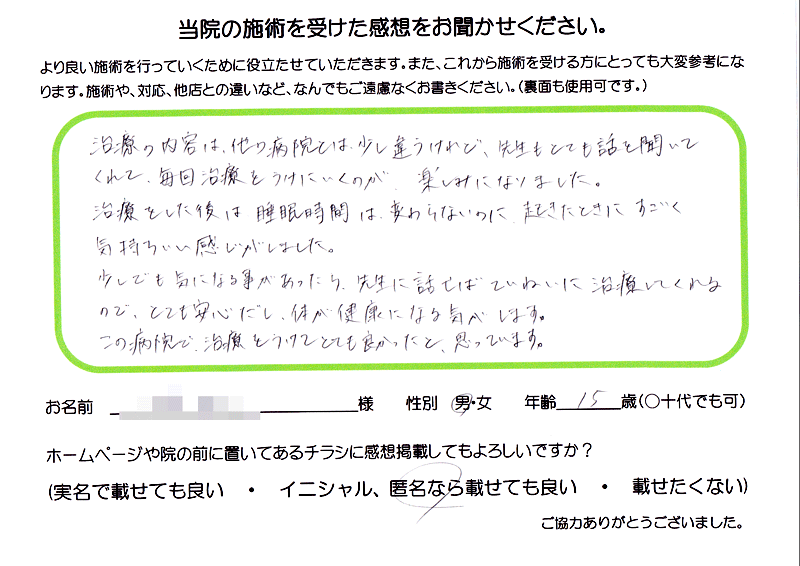 当院の施術を受けた感想をお聞かせください。
より良い施術を行っていくために役立たせていただきます。また、これから施術を受ける方にとっても大変参考にな
ります。施術や、対応、他店との違いなど、なんでもご遠慮なくお書きください。(裏面も使用可です。)
治療の内容は、他の病院とは、少し違うけれど、先生もとても話を聞いて
くれて、毎回治療をうけにいくのが、楽しみになりました。
治療をした後は睡眠時間は、変わらないのに、起きたときにすごく
気持ちいい感じがしました。
少しでも気になる事があったら、先生に話せばていねいに治療してくれる
ので、とても安心だし、体が健康になる気がします。
この病院で、治療をうけてとても良かったと、思っています。
お名前 様 性別 男・女 年齢 15 歳(〇十代でも可)
ホームページや院の前に置いてあるチラシに感想掲載してもよろしいですか?
(実名で載せても良い ・ イニシャル、匿名なら載せても良い ・ 載せたくない)
ご協力ありがとうございました。